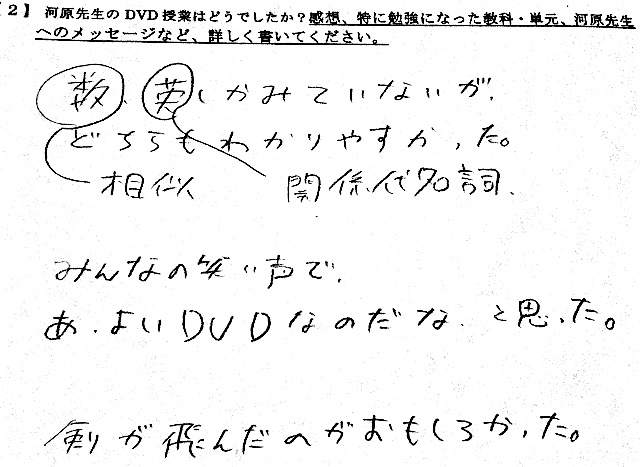 【2】 河原先生のDVD授業はどうでしたか？感想、特に勉強になった教科・単元、河原先生
へのメッセージなど、詳しく書いてください。
数、英しかみていないが、
どちらもわかりやすかった。
相似 関係代名詞、
みんなの笑い声で、
あ、よいDVDなのだな、と思った。
剣が飛んだのがおもしろかった。